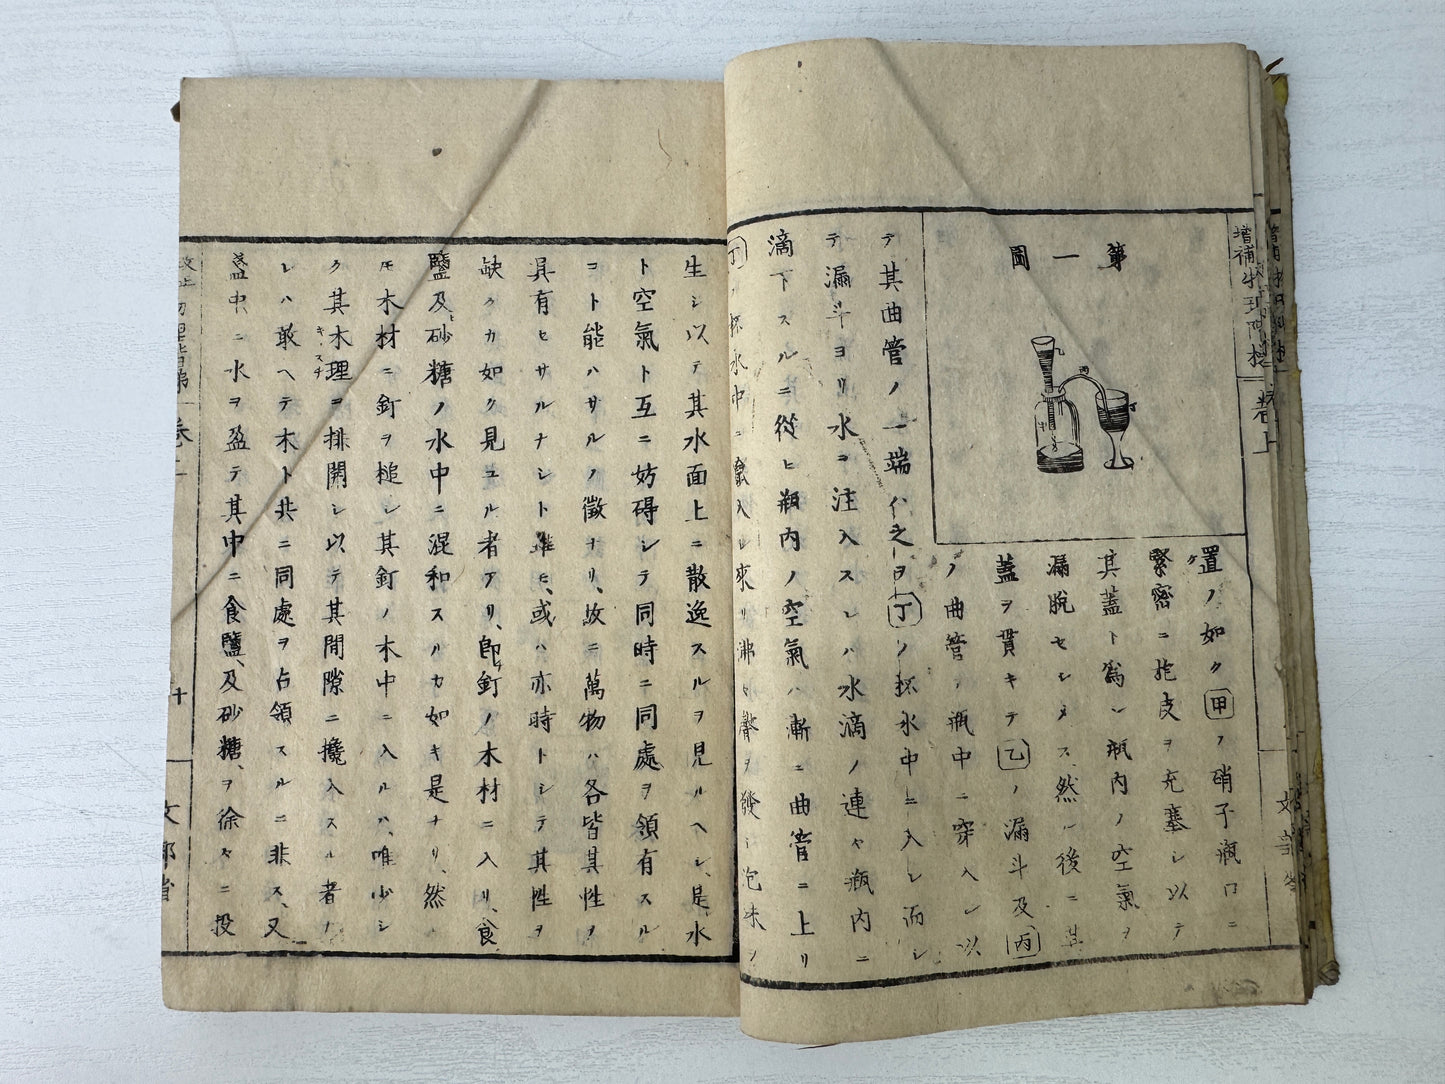 増補物理階梯
卷上
文部省
第一圖
置ノ如ク甲ノ硝子瓶口ニ
緊密ニ㧌皮ヲ充塞シ以テ
其蓋ト爲シ瓶内ノ空氣ヲ
漏脱セシメス然ル後ニ其
蓋ヲ貫キテ乙ノ漏斗及丙
ノ曲管ヲ瓶中ニ穿入シ以
テ其曲管ノ一端ハ之ヲ丁ノ杯水中ニ入レ而シ
テ漏斗ヨリ水ヲ注入スレハ水滴ノ連々瓶内ニ
滴下スルニ從ヒ瓶内ノ空氣ハ漸ニ曲管ニ上リ
丁ノ杯水中ニ竄入シ來リ沸々聲ヲ發シ泡沫ヲ
生シ以テ其水面上ニ散逸スルヲ見ルヘシ、是水
ト空氣ト互ニ妨碍シテ同時ニ同處ヲ領有スル
コト能ハサルノ徵ナリ、故ニ萬物ハ各皆其性ヲ
具有セサルナシト雖モ、或ハ亦時トシテ其性ヲ
缺クカ如ク見ユル者アリ、即釘ノ木材ニ入リ、食
鹽及砂糖ノ水中ニ混和スルカ如キ是ナリ、然レ
𪜈木材ニ釘ヲ槌シ其釘ノ木中ニ入ルハ、唯少シ
ク其木理ヲ排開シ以テ其間隙ニ攙入スル者ナ
キスヂ
レハ敢ヘテ木ト共ニ同處ヲ占領スルニ非ス、又
盞中ニ水ヲ盈テ其中ニ食鹽、及砂糖、ヲ徐々ニ投
文部省